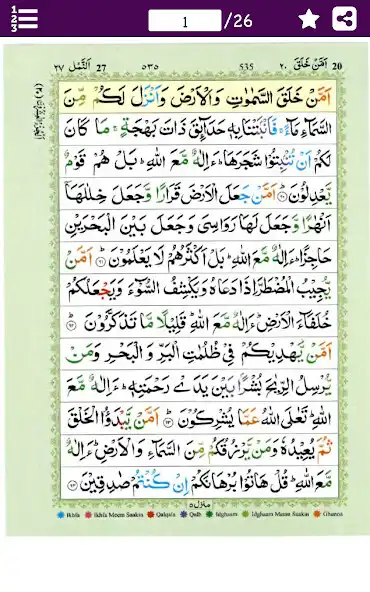 1 2 3
1 /26
٢٧ اَلنَّمْل 27
٥٣٥
535
٢٠ اَمَّنْ خَلَقَ 20
اَمَّنْ خَلَقَ السَّمٰوٰتِ وَالْاَرْضَ وَاَنْزَلَ لَكُمْ مِّنَ
السَّمَآءِ مَآءً ۚ فَاَنْۢبَتْنَا بِهٖ حَدَآئِقَ ذَاتَ بَهْجَةٍ ۚ مَا كَانَ
لَكُمْ اَنْ تُنْۢبِتُوْا شَجَرَهَا ؕ ءَاِلٰهٌ مَّعَ اللّٰهِ ؕ بَلْ هُمْ قَوْمٌ
يَّعْدِلُوْنَ ۞ اَمَّنْ جَعَلَ الْاَرْضَ قَرَارًا وَّجَعَلَ خِلٰلَهَاۤ
اَنْهٰرًا وَّجَعَلَ لَهَا رَوَاسِىَ وَجَعَلَ بَيْنَ الْبَحْرَيْنِ
حَاجِزًا ؕ ءَاِلٰهٌ مَّعَ اللّٰهِ ؕ بَلْ اَكْثَرُهُمْ لَا يَعْلَمُوْنَ ۞ اَمَّنْ
يُّجِيْبُ الْمُضْطَرَّ اِذَا دَعَاهُ وَيَكْشِفُ السُّوْٓءَ وَيَجْعَلُكُمْ
خُلَفَآءَ الْاَرْضِ ؕ ءَاِلٰهٌ مَّعَ اللّٰهِ ؕ قَلِيْلًا مَّا تَذَكَّرُوْنَ ۞
اَمَّنْ يَّهْدِيْكُمْ فِىْ ظُلُمٰتِ الْبَرِّ وَالْبَحْرِ وَمَنْ
يُّرْسِلُ الرِّيٰحَ بُشْرًۢا بَيْنَ يَدَىْ رَحْمَتِهٖ ؕ ءَاِلٰهٌ مَّعَ
اللّٰهِ ؕ تَعٰلَى اللّٰهُ عَمَّا يُشْرِكُوْنَ ۞ اَمَّنْ يَّبْدَؤُا الْخَلْقَ
ثُمَّ يُعِيْدُهٗ وَمَنْ يَّرْزُقُكُمْ مِّنَ السَّمَآءِ وَالْاَرْضِ ؕ ءَاِلٰهٌ
مَّعَ اللّٰهِ ؕ قُلْ هَاتُوْا بُرْهَانَكُمْ اِنْ كُنْتُمْ صٰدِقِيْنَ ۞
منزل ٥
Ikhfa Ikhfa Meem Saakin Qalqala Qalb Idghaam Idghaam Meem Saakin Ghunna